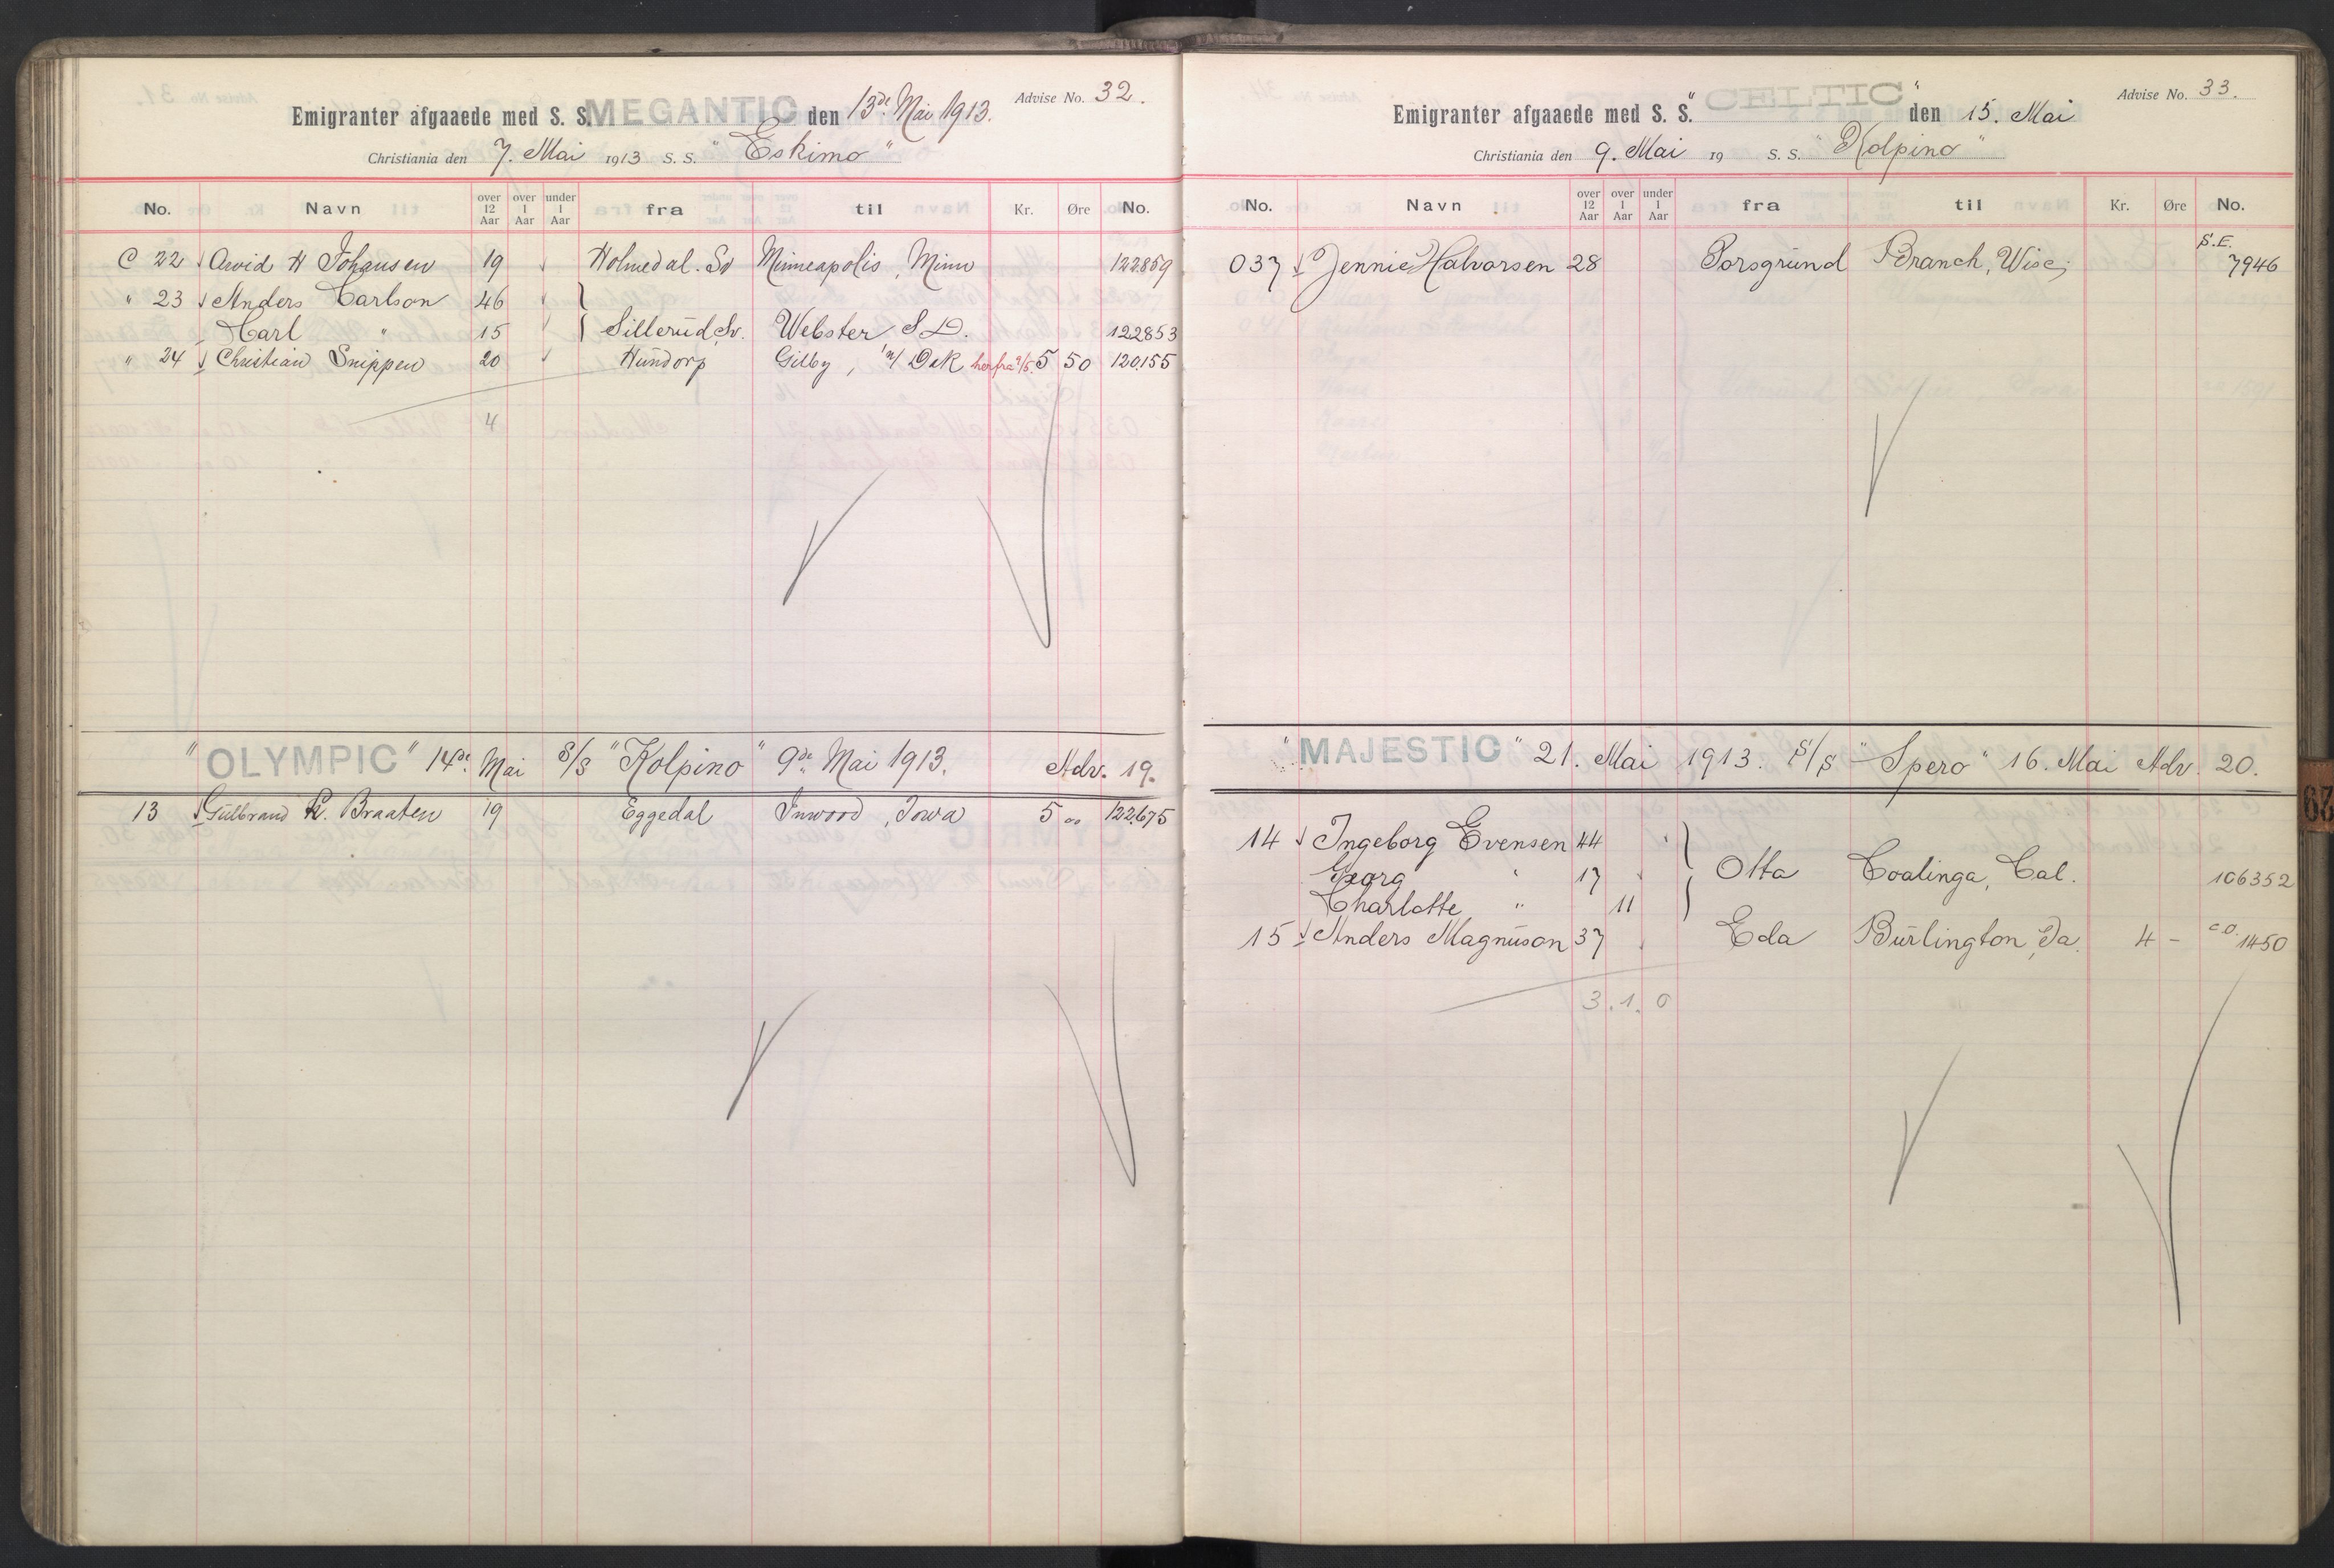 Advise No. 32.
Emigranter afgaaede med S. S. MEGANTIC den 13de Mai 1913.
Christiania den 7. Mai 1913 S. S. "Eskimo"
No. Navn over 12 Aar over 1 Aar under 1 Aar fra til Kr. Øre No.
C 22 Arvid H Johansen 19 Holmedal. Sv Minneapolis, Minn 122859
" 23 Anders Carlson 46
Carl " 15 Sillerud, Sv. Webster S.D. 122853
" 24 Christian Snippen 20 Hundorp Gilby, N/ Dak herfra 9/5. 5 50 120155
4
"OLYMPIC" 14de Mai S/S "Kolpino" 9de Mai 1913. Adv. 19.
13 Gulbrand K. Braaten 19 Eggedal Inwood, Iowa 5 00 122675
Advise No. 33.
Emigranter afgaaede med S. S. "CELTIC" den 15. Mai
Christiania den 9. Mai 19 S. S. "Kolpino"
No. Navn over 12 Aar over 1 Aar under 1 Aar fra til Kr. Øre No.
S.E.
037 Jennie Halvorsen 28 Porsgrund Branch, Wisc. 7946
"MAJESTIC" 21. Mai 1913. S/S "Spero" 16. Mai Adv. 20.
14 Ingeborg Evensen 44
Georg " 17 Otta Coalinga, Cal. 106352
Charlotte " 11
15 Anders Magnuson 37 Eda Burlington, Ia. 4 - c.o. 1450
3. 1. 0